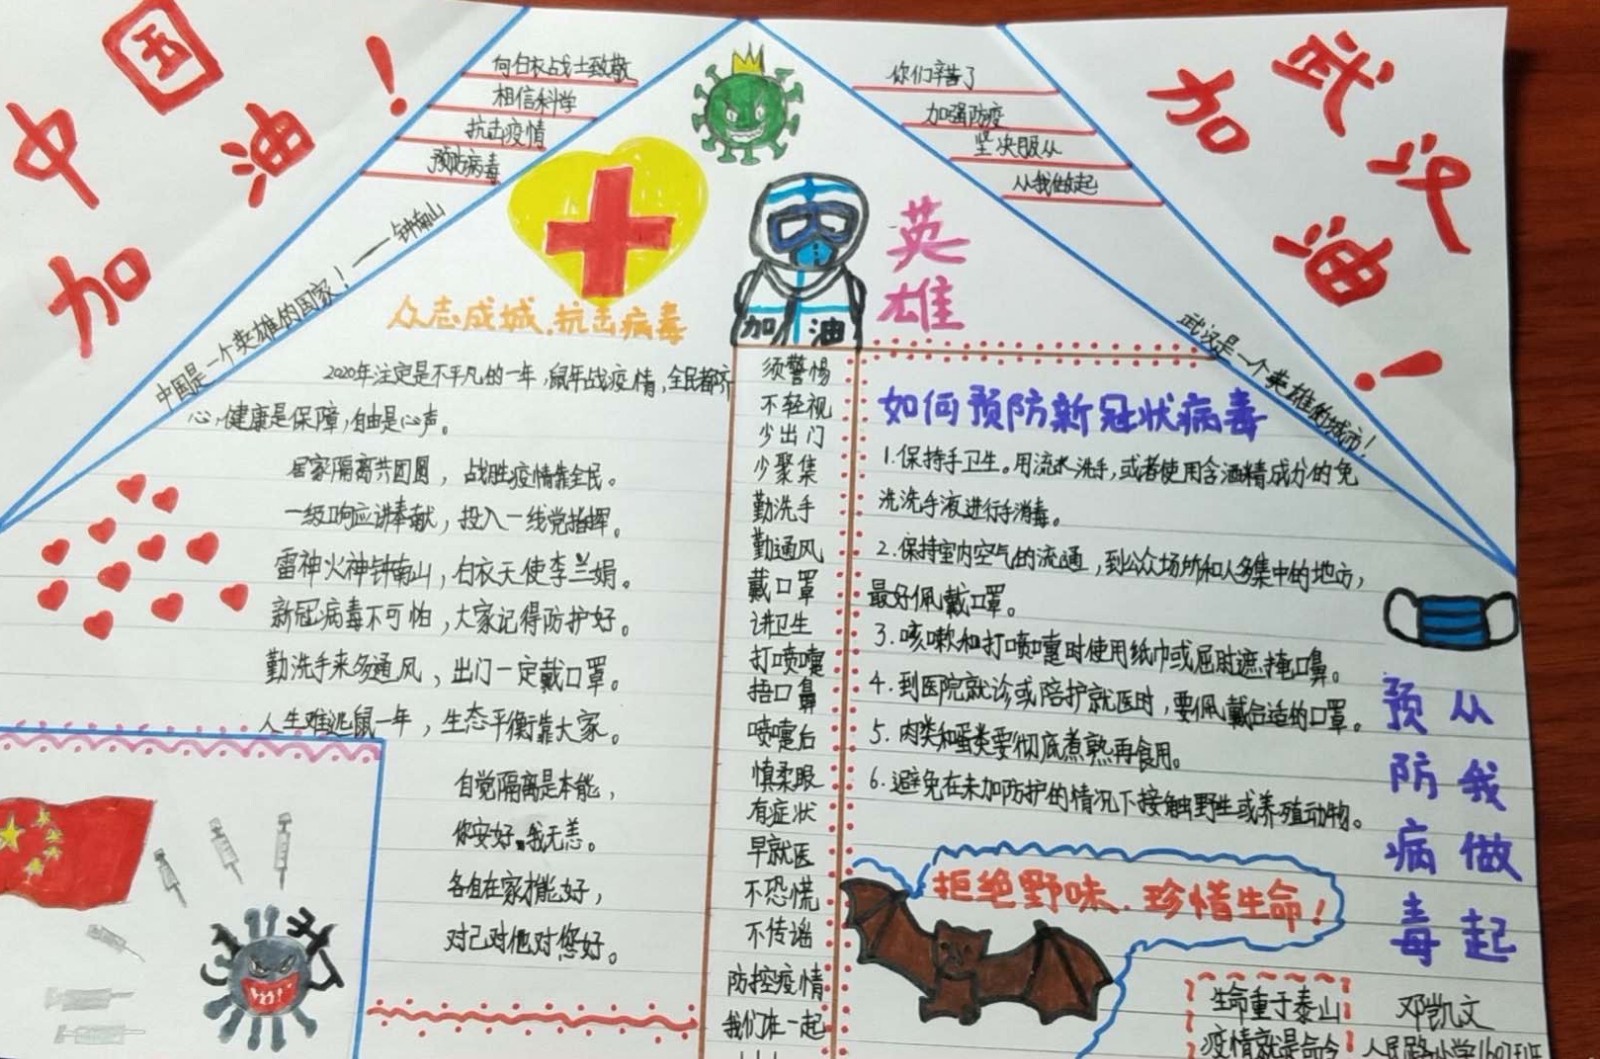 中国
加油！
向白衣战士致敬
相信科学
抗击疫情
预防病毒
你们辛苦了
加强防疫
坚决服从
从我做起
武汉
加油！
中国是一个英雄的国家！——钟南山
武汉是一个英雄的城市！
众志成城.抗击病毒
加油
英雄
2020年注定是不平凡的一年，鼠年战疫情，全民都齐
心，健康是保障，自由是心声。
居家隔离共团圆，战胜疫情靠全民。
一级响应讲奉献，投入一线党指挥。
雷神火神钟南山，白衣天使李兰娟。
新冠病毒不可怕，大家记得防护好。
勤洗手来多通风，出门一定戴口罩。
人生难迟鼠一年，生态平衡靠大家。
自觉隔离是本能，
你安好.我无恙。
各自在家才能好，
对己对他对您好。
须警惕
不轻视
少出门
少聚集
勤洗手
勤通风
戴口罩
讲卫生
打喷嚏
捂口鼻
喷嚏后
慎柔眼
有症状
早就医
不恐慌
不传谣
防控疫情
我们在一起
如何预防新冠状病毒
1.保持手卫生。用流水洗手，或者使用含酒精成分的免
洗洗手液进行手消毒。
2.保持室内空气的流通，到公众场所和人多集中的地方，
最好佩戴口罩。
3.咳嗽和打喷嚏时使用纸巾或屈肘遮掩口鼻。
4.到医院就诊或陪护就医时，要佩戴合适的口罩。
5.肉类和蛋类要彻底煮熟再食用。
6.避免在未加防护的情况下接触野生或养殖动物。
拒绝野味.珍惜生命！
预防病毒
从我做起
生命重于泰山
疫情就是命令
邓凯文
人民路小学1607班